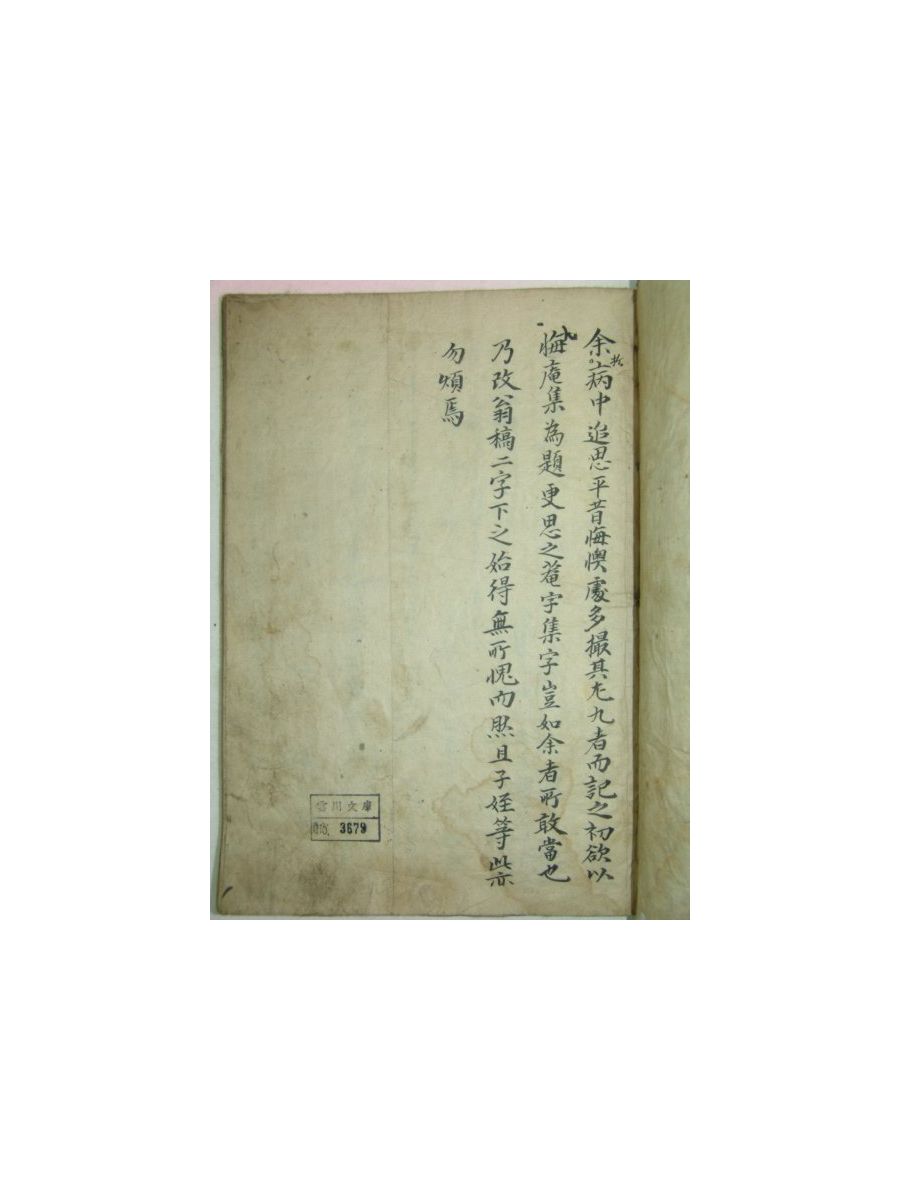 余於病中追思平昔悔懊處多撮其尤九者而記之初欲以
九悔庵集為題更思之菴字集字豈如余者所敢當也
乃改翁稿二字下之始得無所愧而然且子姪等
勿煩焉
雪川文庫
3679